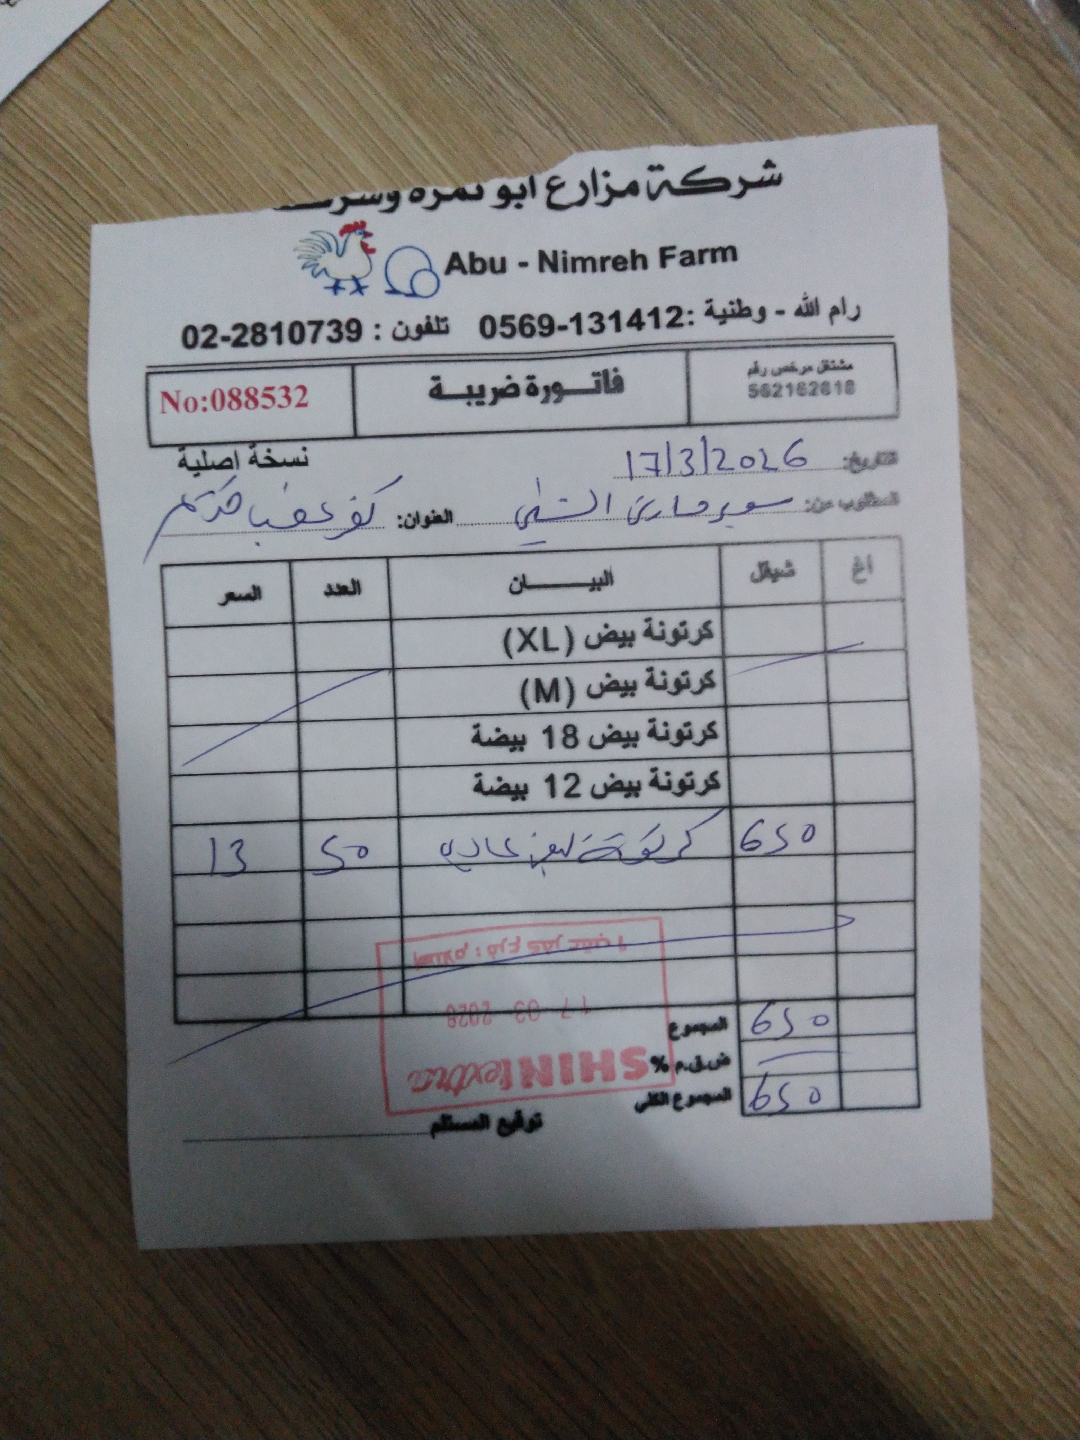 شركة مزارع ابو نمره وشركاه
Abu - Nimreh Farm
رام الله - وطنية : 0569-131412 تلفون : 02-2810739
مشتغل مرخص رقم
562162618
فاتـــورة ضريبـــة
No:088532
نسخة اصلية
التاريخ: 17/3/2026
المطلوب من: سوبر ماركت العنوان: كفر عقب
اغ شيقل البيـــــــان العدد السعر
كرتونة بيض (XL)
كرتونة بيض (M)
كرتونة بيض 18 بيضة
كرتونة بيض 12 بيضة
650 كرتونة بيض عادي 50 13
استلام : فرع كفر عقب 1
17 -03- 2026
SHINI extra
المجموع 650
ض.ق.م %
المجموع الكلي 650
توقيع المستلم